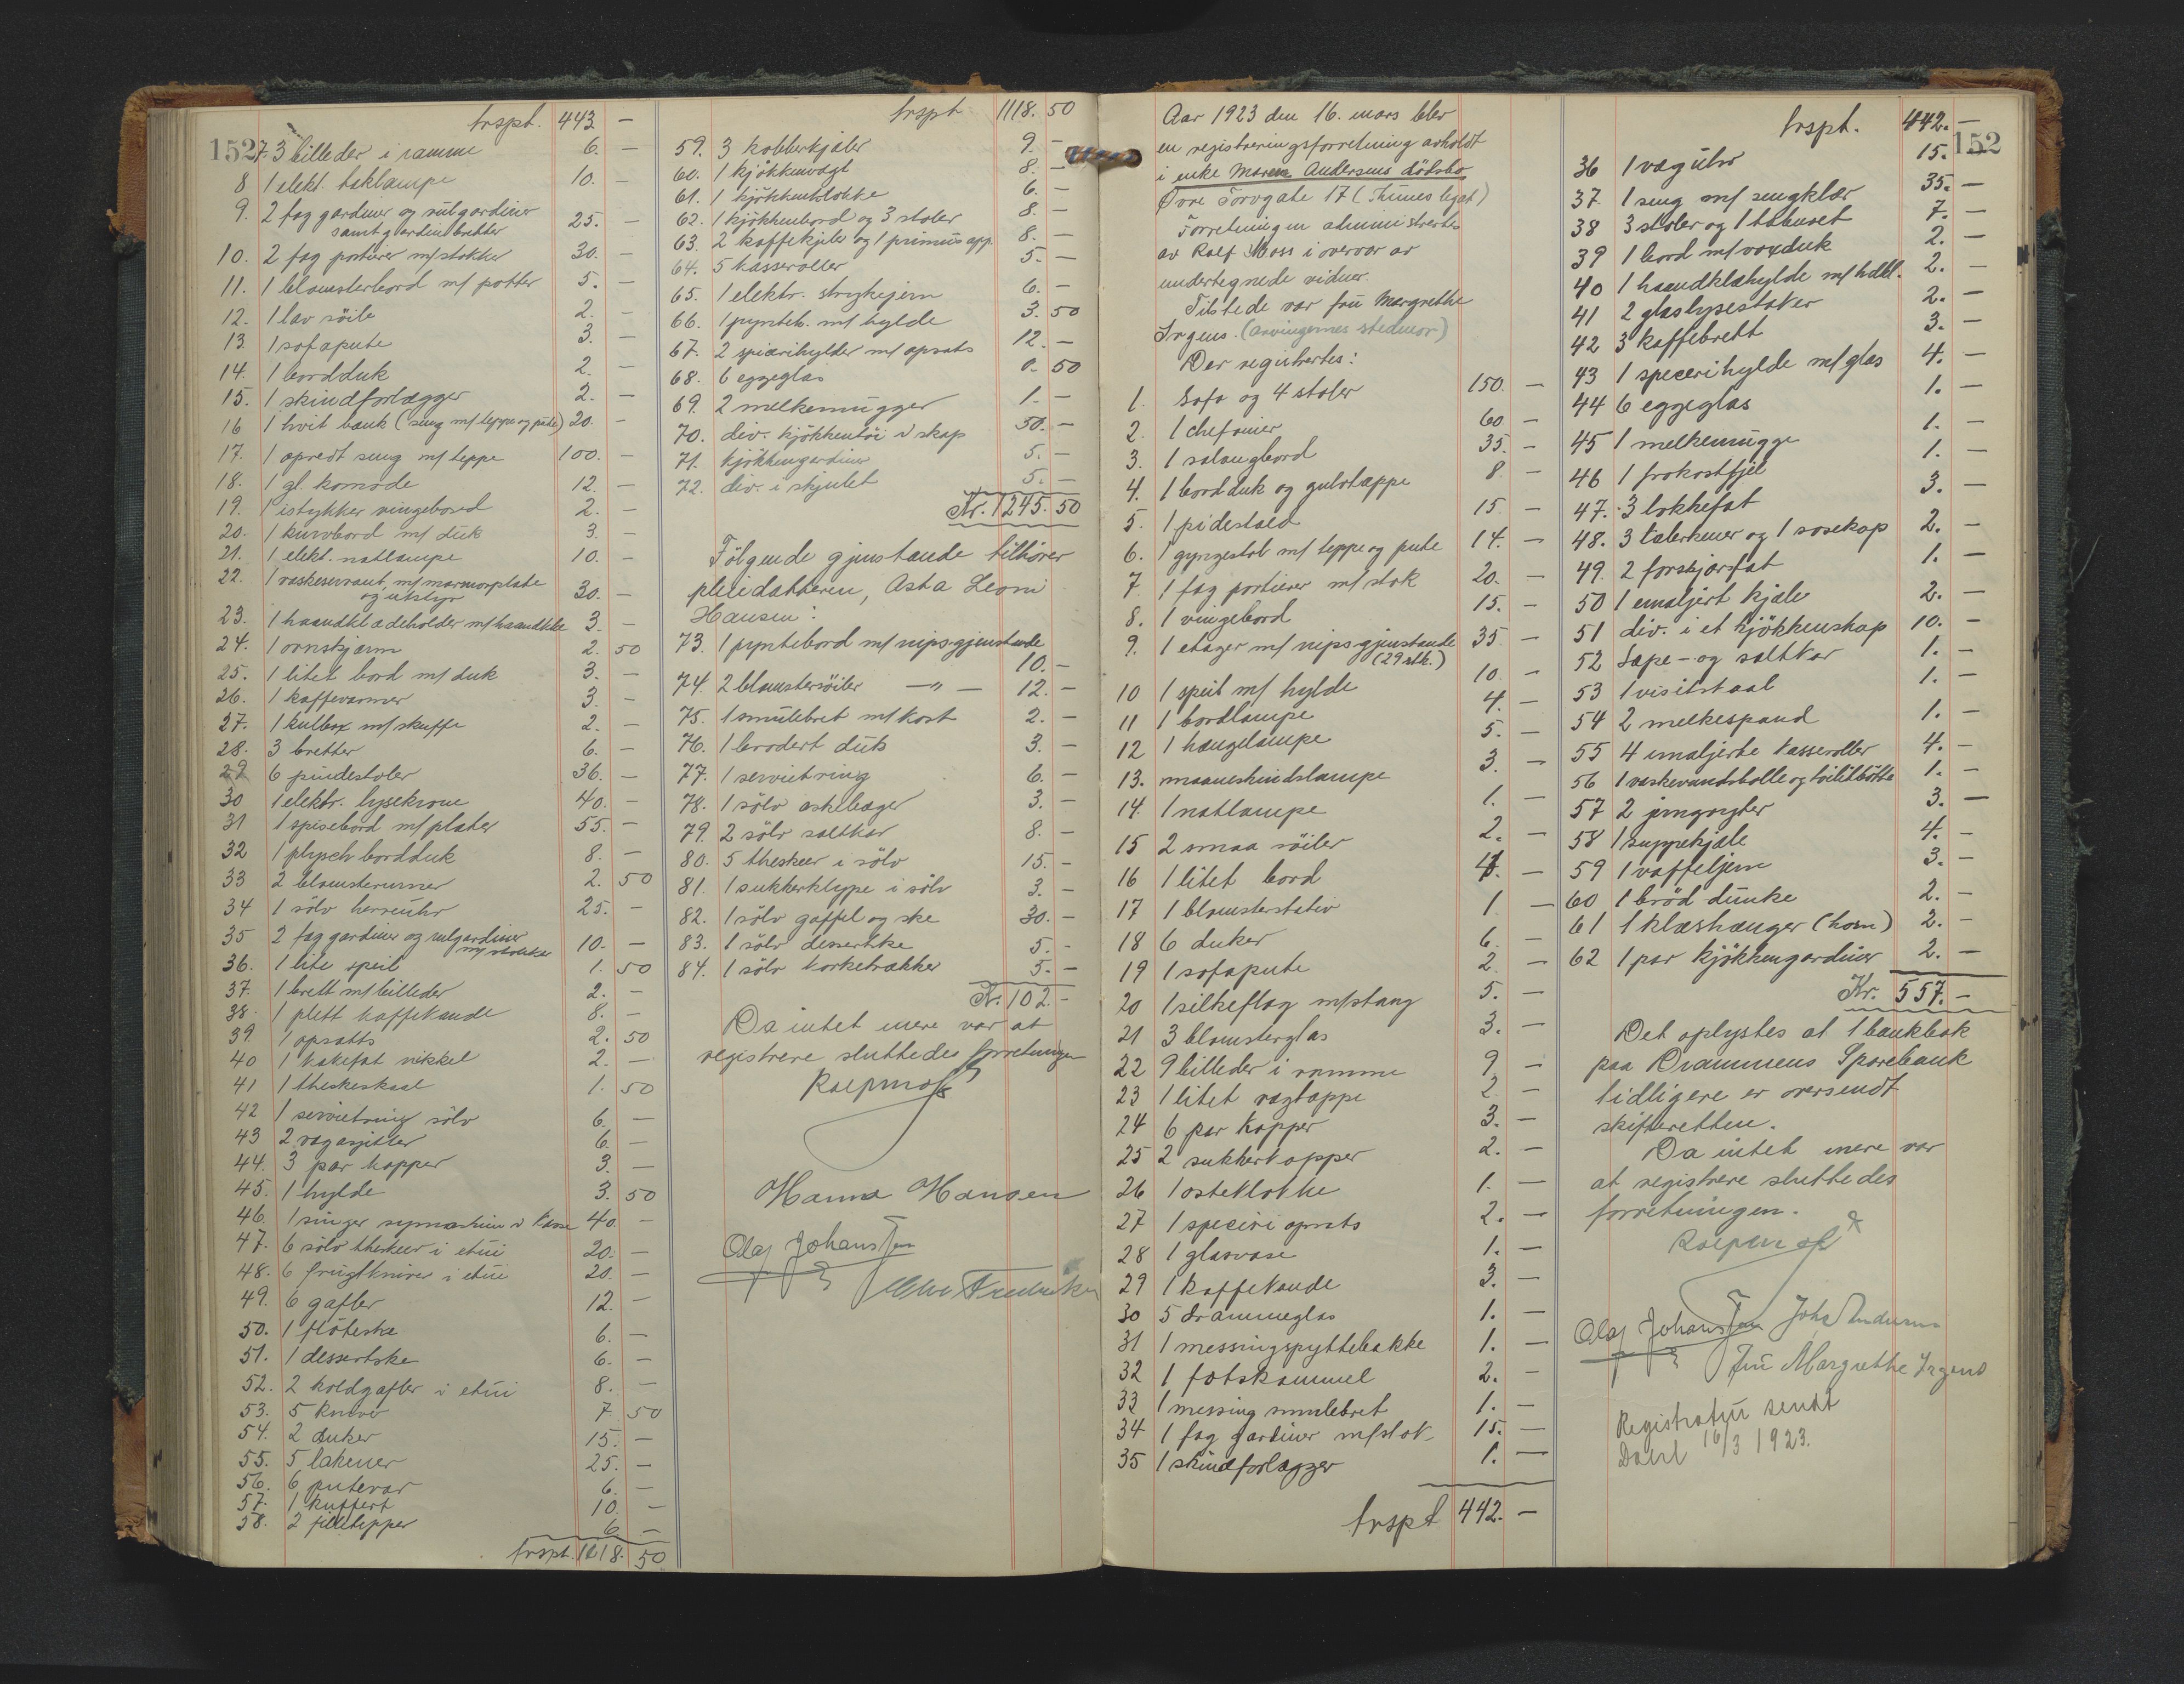 152
trspt. 443 —
7. 3 billeder i ramme 6. —
8 1 elekt. taklampe 10. —
9. 2 fag gardiner og rulgardiner
samt gardinbretter 25. —
10. 2 fag portierer m/stokker 30. —
11. 1 blomsterbord m/ potter 5. —
12. 1 lav söile 2. —
13. 1 sofapute 3. —
14. 1 bordduk 2. —
15. 1 skindforlægger 2. —
16 1 hvit bænk (seng m/ teppe og pute) 20. —
17. 1 opredt seng m/ teppe 100. —
18. 1 gl. komode 12. —
19. 1 istykker vingebord 2. —
20. 1 kurvbord m/ duk 3. —
21. 1 elekt. natlampe 10. —
22. 1 vaskeservant m/ marmorplate
og utstyr 30. —
23. 1 haandklædeholder m/haandklæ 3. —
24. 1 ovnskjærm 2. 50
25. 1 litet bord m/ duk 3. —
26. 1 kaffevarmer 3. —
27. 1 kulbox m/ skuffe 2. —
28. 3 bretter 6. —
29 6 pindestoler 36. —
30 1 elektr. lysekrone 40. —
31 1 spisebord m/plater 55. —
32 1 plysch bordduk 8. —
33 2 blomsterurner 2. 50
34 1 sölv herreuhr 25. —
35 2 fag gardiner og rulgardiner
m/stokker 10. —
36. 1 lite speil 1. 50
37. 1 brett m/billeder 2. —
38. 1 plett kaffekande 8. —
39. 1 opsatts 2. 50
40 1 kakefat nikkel 2. —
41 1 theskeskaal 1. 50
42 1 serviettring sölv 6. —
43 2 vegasjetter 6. —
44. 3 par kopper 3. —
45. 1 hylde 3. 50
46. 1 singer symaskine i kasse 40. —
47. 6 sölv theskeer i etui 20. —
48. 6 frugtkniver i etui 20. —
49. 6 gafler 12. —
50. 1 flöteske 6. —
51. 1 dessertske 6. —
52. 2 koldgafler i etui 8. —
53. 5 kniver 7. 50
54. 2 duker 15. —
55. 5 lakener 25. —
56. 6 putevar 6. —
57. 1 kuffert 10. —
58. 2 filletepper 6. —
trspt. 1118. 50
trspt. 1118. 50
59. 3 kobberkjeler 9. —
60. 1 kjökkenvægt 8. —
61. 1 kjökkenklokke 6. —
62. 1 kjökkenbord og 3 stoler 8. —
63. 2 kaffekjeler og 1 primus app. 8. —
64. 5 kasseroller 5. —
65. 1 elektr. strykejern 6. —
66. 1 pynteh. m/ hylde 3. 50
67. 2 spicerihylder m/ opsats 12. —
68. 6 eggeglas 0. 50
69. 2 melkemugger 1. —
70. div. kjökkentöi i skap 50. —
71. kjökkengardiner 5. —
72. div. i skjulet 5. —
Kr. 1245. 50
Fölgende gjenstande tilhörer
pleiedatteren, Asta Leoni
Hansen:
73. 1 pyntebord m/ nipsgjenstande 10. —
74. 2 blomstersöiler —"— 12. —
75. 1 smulebret m/ kost 2. —
76. 1 brodert duk 3. —
77. 1 serviettring 6. —
78. 1 sölv askebæger 3. —
79. 2 sölv saltkar 8. —
80. 5 theskeer i sölv 15. —
81. 1 sukkerklype i sölv 3. —
82. 1 sölv gaffel og ske 30. —
83. 1 sölv dessertske 5. —
84. 1 sölv korketrækker 5. —
Kr. 102. —
Da intet mere var at
registrere sluttedes forretningen
Rolf Moss
Hanna Hansen
Olaf Johansen
Aar 1923 den 16. mars blev
en registreringsforretning avholdt
i enke Maren Andersens dödsbo
Övre Torvgate 17 (Thunes legat)
Forretningen administrertes
av Rolf Moss i overvær av
undertegnede vidner.
Tilstede var fru Margrethe
Irgens. (arvingernes stedmor)
Der registrertes:
1. Sofa og 4 stoler 150. —
2. 1 chefonier 60. —
3. 1 salongbord 35. —
4. 1 bordduk og gulvtæppe 8. —
5. 1 pidestael 15. —
6. 1 gyngestol m/ teppe og pute 14. —
7 1 fag portierer m/ stok 20. —
8. 1 vingebord 15. —
9. 1 etager m/ nipsgjenstande
(29 stk.) 35 —
10 1 speil m/ hylde 10. —
11 1 bordlampe 4. —
12 1 hængelampe 5. —
13. maaneskindslampe 3. —
14. 1 natlampe 1. —
15 2 smaa söiler 2. —
16 1 litet bord 4. —
17 1 blomsterstativ 1 —
18 6 duker 6. —
19 1 sofapute 2. —
20 1 silkeflag m/stang 5. —
21 3 blomsterglas 3. —
22 9 billeder i ramme 9 —
23 1 litet vægtæppe 2 —
24 6 par kopper 3. —
25 2 sukkerkopper 2. —
26 1 osteklokke 1. —
27 1 speceri opsats 2. —
28 1 glasvase 1. —
29 1 kaffekande 3. —
30 5 drammeglas 1. —
31 1 messingspyttebakke 1. —
32 1 fotskammel 2. —
33 1 messing smulebret 1. —
34 1 fag gardiner m/stok 15. —
35 1 skindforlægger 1. —
trspt 442. —
152
trspt. 442. —
36 1 væguhr 15. —
37 1 seng m/ sengklær 35. —
38 3 stoler og 1 taburet 7. —
39 1 bord m/ voxduk 2. —
40 1 haandklæhylde m/hdkl. 2. —
41 2 glaslysestaker 2. —
42 3 kaffebrett 3. —
43 1 specerihylde m/glas 4. —
44 6 eggeglas 1. —
45 1 melkemugge 1. —
46 1 frokostfjel 1. —
47. 3 lokkefat 3. —
48. 3 talerkener og 1 sosekop 2. —
49. 2 forskjærsfat 1. —
50 1 emaljert kjele 2. —
51 div. i et kjökkenskap 10. —
52 Sæpe- og saltkar 1. —
53 1 visitskaal 1. —
54 2 melkespand 1. —
55 4 emaljerte kasseroller 4. —
56 1 vaskevandsbolle og toilitbötte 1. —
57 2 jerngryter 3. —
58 1 suppekjele 4. —
59 1 vaffeljern 3. —
60 1 bröd dunke 2. —
61 1 klæshænger (horn) 2. —
62 1 par kjökkengardiner 2. —
Kr. 557. —
Det oplystes at 1 bankbok
paa Drammens Sparebank
tidligere er oversendt
skifteretten.
Da intet mere var
at registrere sluttedes
forretningen.
Rolf Moss
Olaf Johansen Johs Andersen
Fru Margrethe Irgens
Registratur sendt
Dahl 16/3 1923.